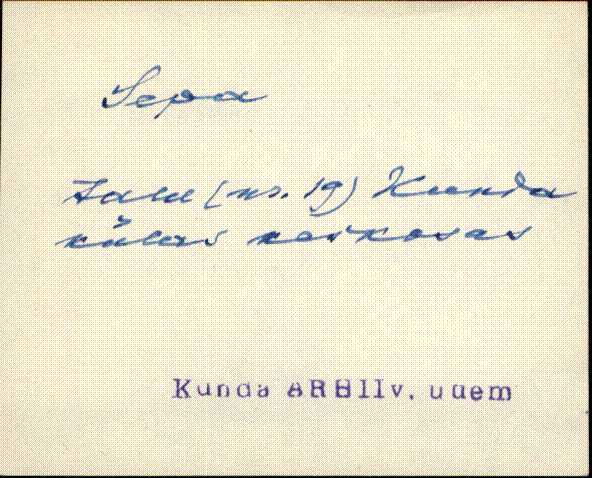 Sepa
talu (nr. 19) Kunda
külas keskosas
Kunda ARHIIV, uuem